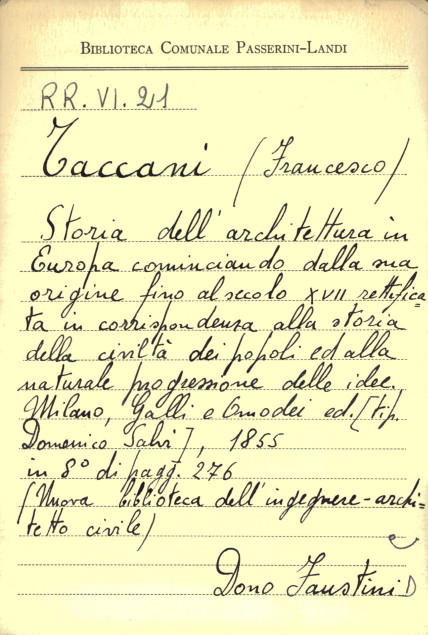 BIBLIOTECA COMUNALE PASSERINI-LANDI
RR. VI. 21
Taccani (Francesco)
Storia dell'architettura in
Europa cominciando dalla sua
origine fino al secolo XVII rettifica-
ta in corrispondenza alla storia
della civiltà dei popoli ed alla
naturale progressione delle idee.
Milano, Galli e Omodei ed. [tip.
Domenico Salvi], 1855
in 8° di pagg. 276
(Nuova biblioteca dell'ingegnere-archi-
tetto civile)
Dono Faustini D